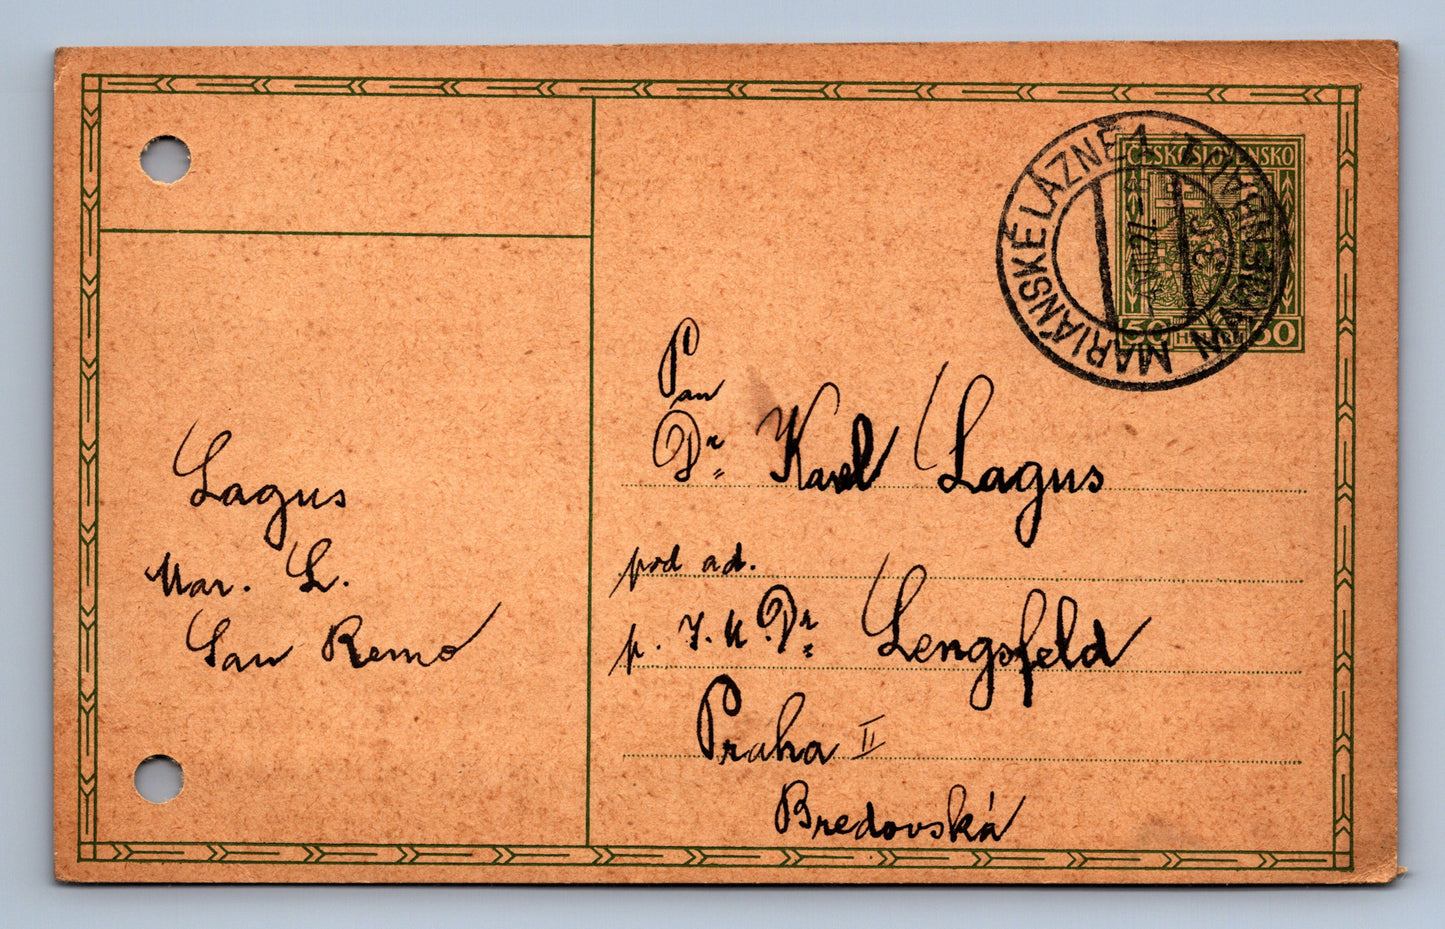 ČESKOSLOVENSKO
50 50
MARIÁNSKÉ LÁZNĚ 1
MARIENBAD 1
Lagus
Mar. L.
San Remo
Pan
Dr Karel Lagus
pod ad.
p. J. U. Dr Lengsfeld
Praha II
Bredovská